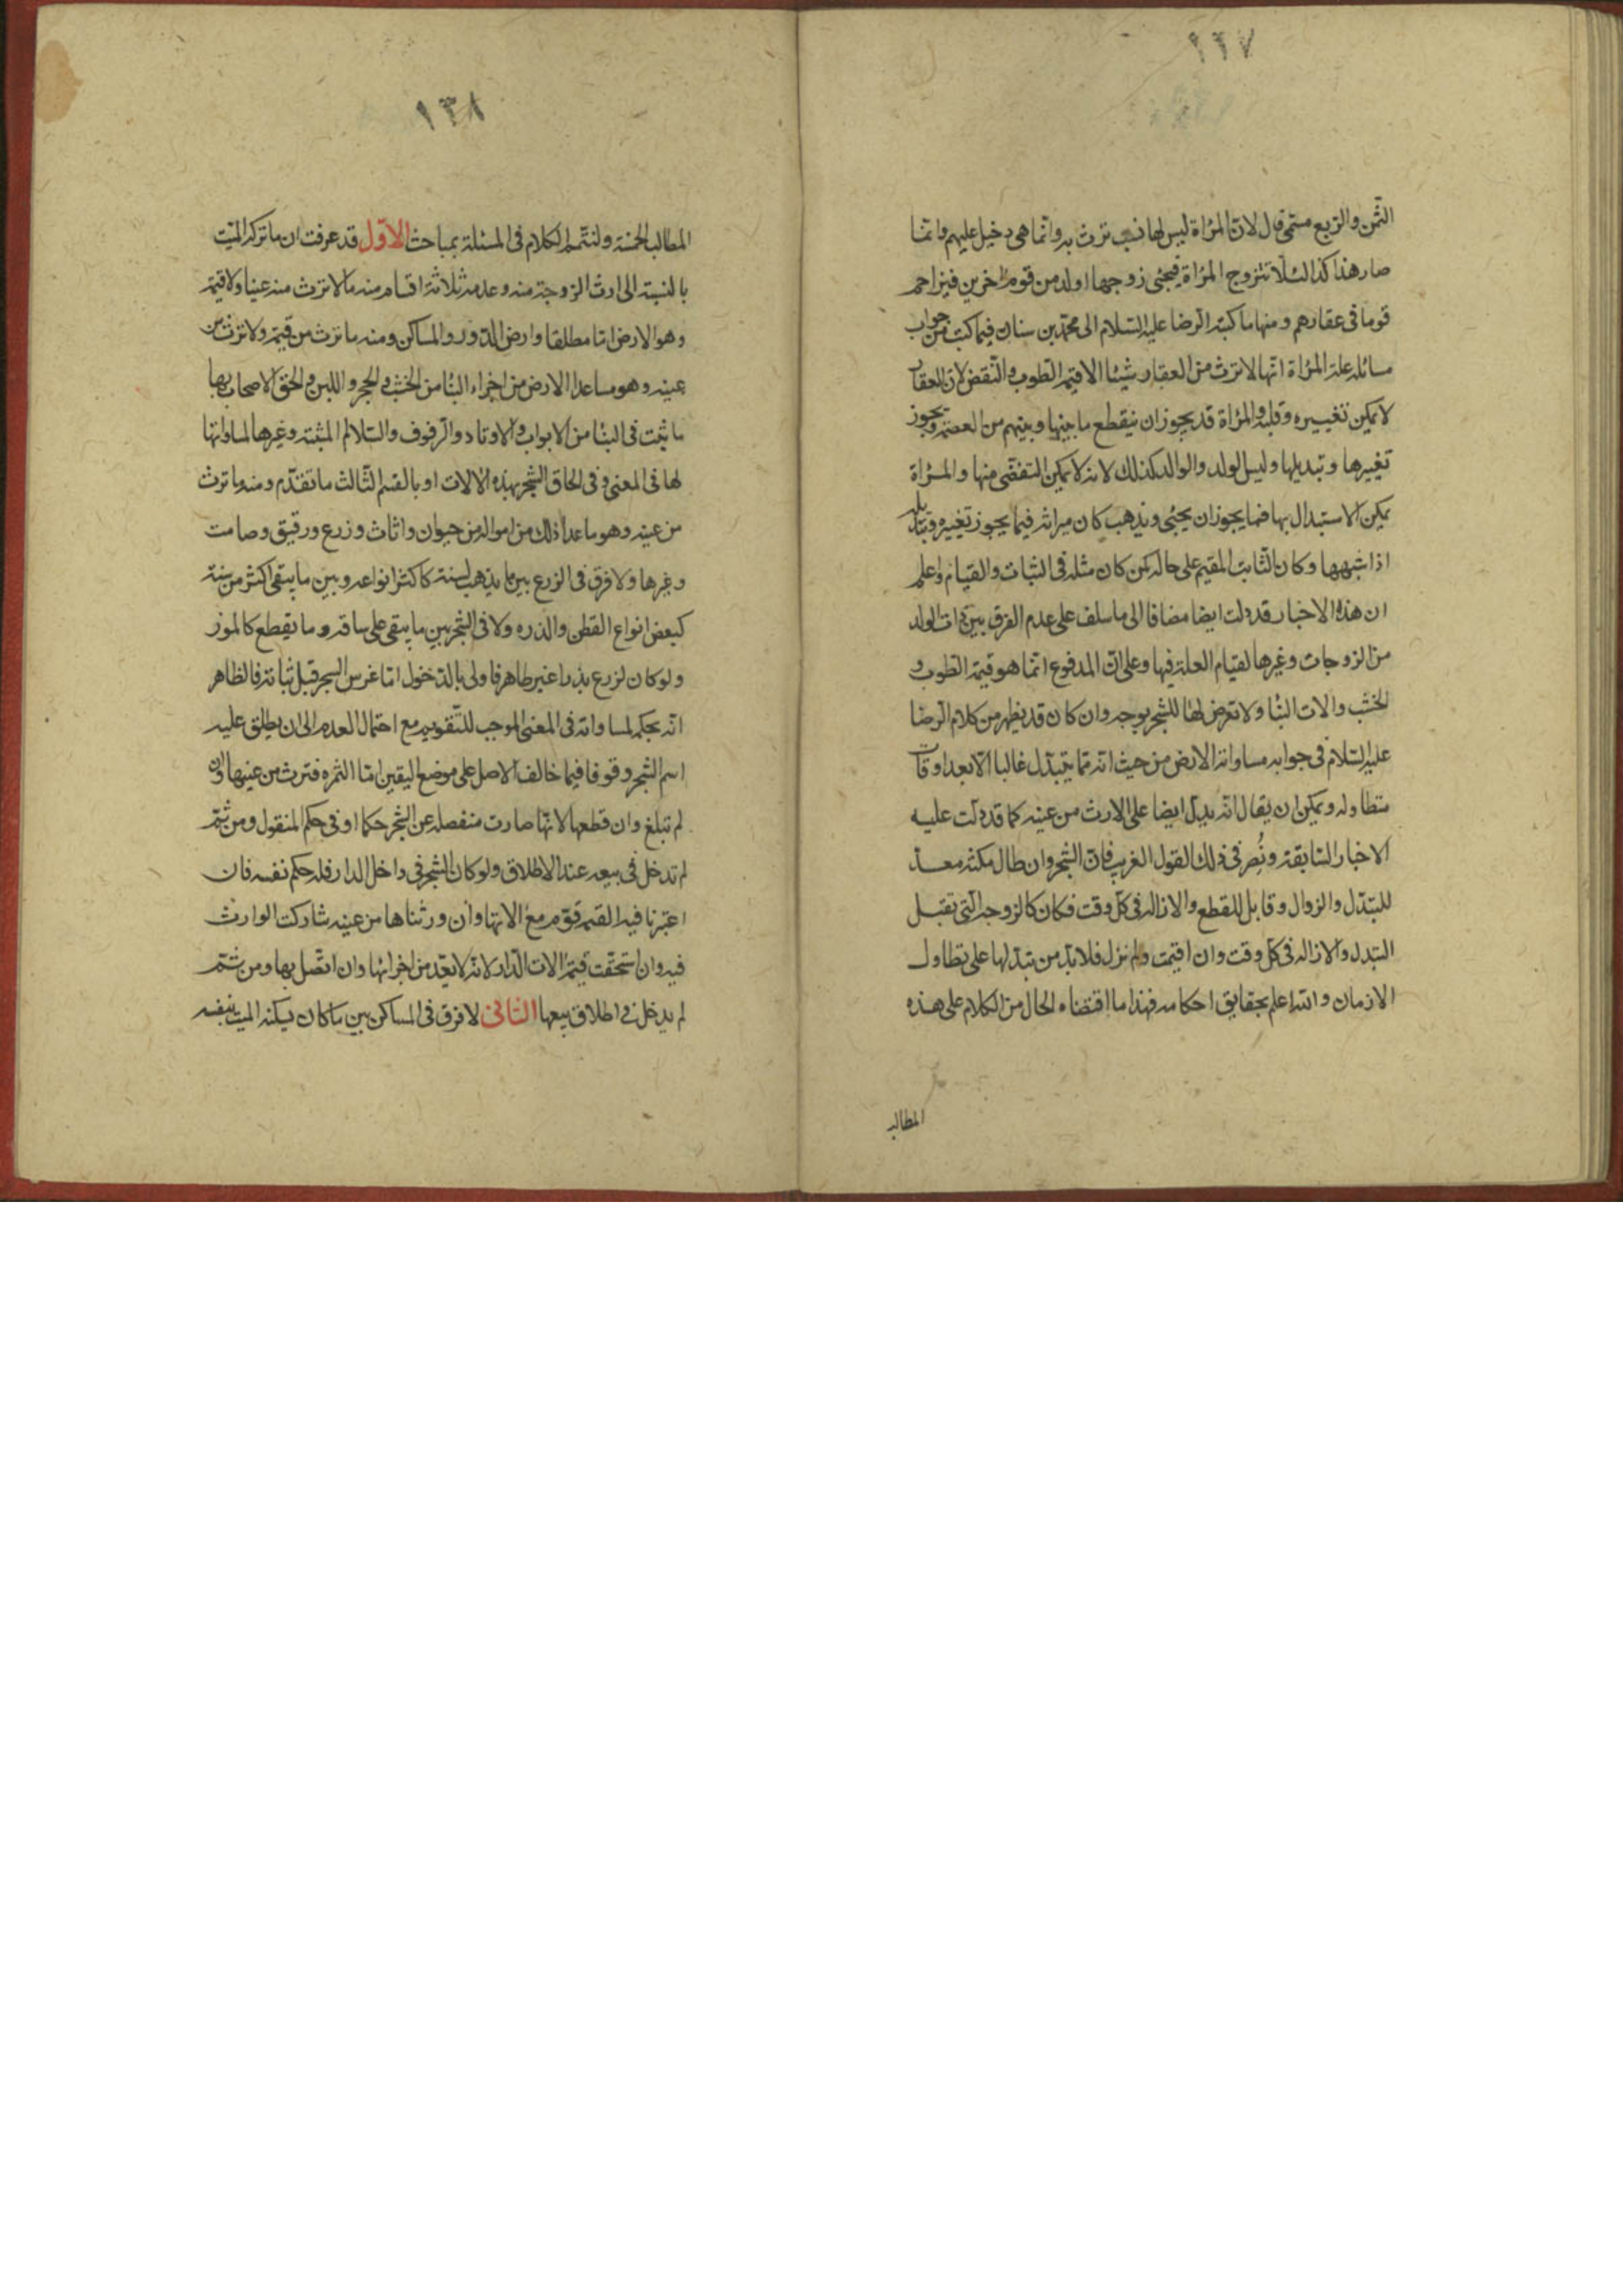 ١٣٧
الثمن والربع مسمى قال لان المرأة ليس لها نسب ترث به وانما هي دخيل عليهم وانما
صار هذا كذا لئلا تتزوج المرأة فيجئ زوجها او ولد من قوم اخرين فيزاحم
قوما في عقارهم ومنها ما كتبه الرضا عليه السلام الى محمد بن سنان فيما كتب من جواب
مسائله علة المرأة انها لا ترث من العقار شيئا الا قيمة الطوب والنقض لان العقار
لا يمكن تغييره وقلبه والمرأة قد يجوز ان ينقطع ما بينها وبينهم من العصمة ويجوز
تغييرها وتبديلها وليس الولد والوالد كذلك لانه لا يمكن التفصى منها والمرأة
يمكن الاستبدال بها فما يجوز ان يجئ ويذهب كان ميراثه فيما يجوز تغييره وتبديله
اذا شبهها وكان الثابت المقيم على حاله كمن كان مثله في الثبات والقيام واعلم
ان هذه الاخبار قد دلت ايضا مضافا الى ما سلف على عدم الفرق بين ذات الولد
من الزوجات وغيرها لقيام العلة فيها وعلى ان المدفوع انما هو قيمة الطوب و
الخشب والات البنا ولا تعرض لها للشجر بوجه وان كان قد يظهر من كلام الرضا
عليه السلام في جوابه مساواته الارض من حيث انه مما يتبدل غالبا الا بعد اوقات
متطاوله ويمكن ان يقال انه يدل ايضا على الارث من عينه كما قد دلت عليه
الاخبار السابقة ونُصِر في ذلك القول الغريب فان الشجر وان طال مكثه معد
للتبدل والزوال وقابل للقطع والازالة في كل وقت فكان كالزوجة التي تقبل
التبدل والازاله في كل وقت وان اقيمت ولم نزل فلا بد من تبدلها على تطاول
الازمان والله اعلم بحقايق احكامه فهذا ما اقتضاه الحال من الكلام على هذه
المطالب
١٣٨
المطالب الخمسة ولنتمم الكلام في المسئلة بمباحث الاول قد عرفت ان ما تركه الميت
بالنسبة الى ارث الزوجة منه وعدمه ثلاثة اقسام منه ما لا ترث منه عينا ولا قيمة
وهو الارض اما مطلقا وارض الدور والمساكن ومنه ما ترث من قيمته ولا ترث من
عينه وهو ما عدا الارض من اجزاء البنا من الخشب والحجر واللبن والحق الاصحاب بها
ما يثبت في البنا من الابواب والاوتاد والرفوف والسلالم المثبتة وغيرها لمساواتها
لها في المعنى وفي الحاق الشجر بهذه الالات او بالقسم الثالث ما تقدم ومنه ما ترث
من عينه وهو ما عدا ذلك من امواله من حيوان واثاث وزرع ورقيق وصامت
وغيرها ولا فرق في الزرع بين ما يذهب لسنة كاكثر انواعه وبين ما يبقى اكثر من سنة
كبعض انواع القطن والذره ولا في الشجر بين ما يبقى على ساقه وما يقطع كالموز
ولو كان لزرع بذرا غير ظاهر فاولى بالدخول اما غرس الشجر قبل ثباته فالظاهر
انه بحكمه لمساواته في المعنى الموجب للتقويم مع احتمال العدم الى ان يطلق عليه
اسم الشجر وقوفا فيما خالف الاصل على موضع اليقين اما الثمره فترث من عينها وان
لم تبلغ وان قطعها لانها صارت منفصله عن الشجر حكما او في حكم المنقول ومن ثم
لم تدخل في بيعه عند الاطلاق ولو كان الشجر في داخل الدار فله حكم نفسه فان
اعتبرنا فيه القيمه قوم مع الاتها وان ورثناها من عينه شاركت الوارث
فيه وان استحقت قيمة الات الدار لانه لا يعد من اجزائها وان اتصل بها ومن ثم
لم يدخل في اطلاق بيعها الثاني لا فرق في المساكن بين ما كان يسكنه الميت بنفسه